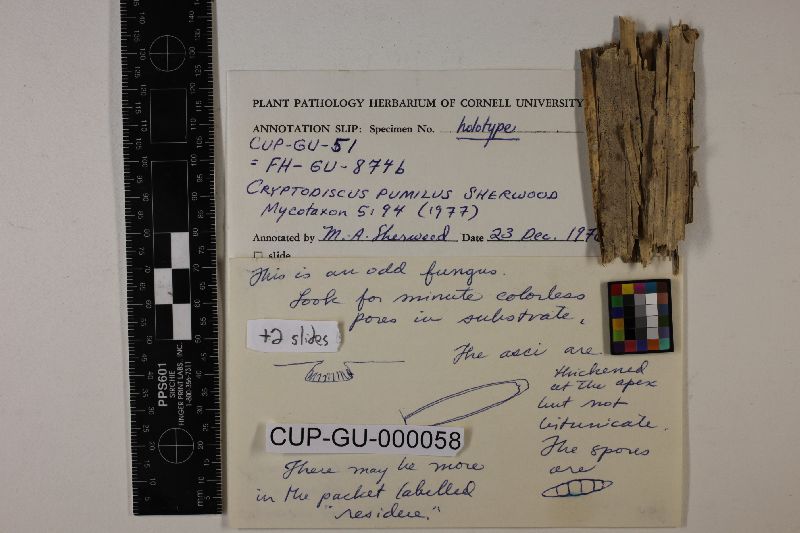 PLANT PATHOLOGY HERBARIUM OF CORNELL UNIVERSITY
ANNOTATION SLIP: Specimen No. holotype
CUP-GU-51
= FH-GU-874b
CRYPTODISCUS PUMILUS SHERWOOD
Mycotaxon 5:94 (1977)
Annotated by M. A. Sherwood Date 23 Dec. 197
slide
This is an odd fungus.
Look for minute colorless
pores in substrate.
+2 slides
The asci are
thickened
at the apex
but not
bitunicate.
The spores
are
CUP-GU-000058
There may be more
in the packet labelled
"residere."
PPS601
SIRCHIE
FINGER PRINT LABS, INC.
1-800-356-7311